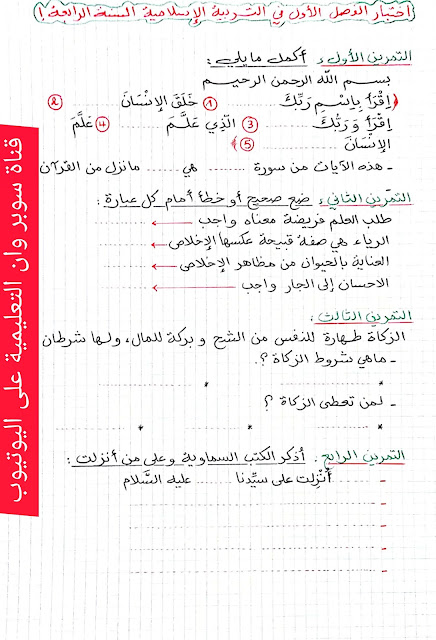 اختبار الفصل الأول في التربية الإسلامية السنة الرابعة !
التمرين الأول : أكمل ما يلي :
بسم الله الرحمن الرحيم
﴿ اِقْرَأْ بِاسْمِ رَبِّكَ ......... ① خَلَقَ الإِنْسَانَ ......... ②
اِقْرَأْ وَرَبُّكَ ......... ③ الَّذِي عَلَّمَ ......... ④ عَلَّمَ
الإِنْسَانَ ......... ⑤ ﴾
- هذه الآيات من سورة ......... هي ......... ما نزل من القرآن
التمرين الثاني : ضع صحيح أو خطأ أمام كل عبارة :
طلب العلم فريضة معناه واجب ←.........
الرياء هي صفة قبيحة عكسها الإخلاص ←.........
العناية بالحيوان من مظاهر الإخلاص ←.........
الاحسان إلى الجار واجب ←.........
التمرين الثالث :
الزكاة طهارة للنفس من الشح و بركة للمال، ولها شرطان
- ماهي شروط الزكاة ؟.
* ......... * .........
- لمن تعطى الزكاة ؟
* ......... * ......... * .........
التمرين الرابع : أذكر الكتب السماوية وعلى من أنزلت :
- ......... أُنْزِلت على سيِّدنا ......... عليه السَّلام
- .........
- .........
- .........
- .........
قناة سوبر وان التعليمية على اليوتيوب